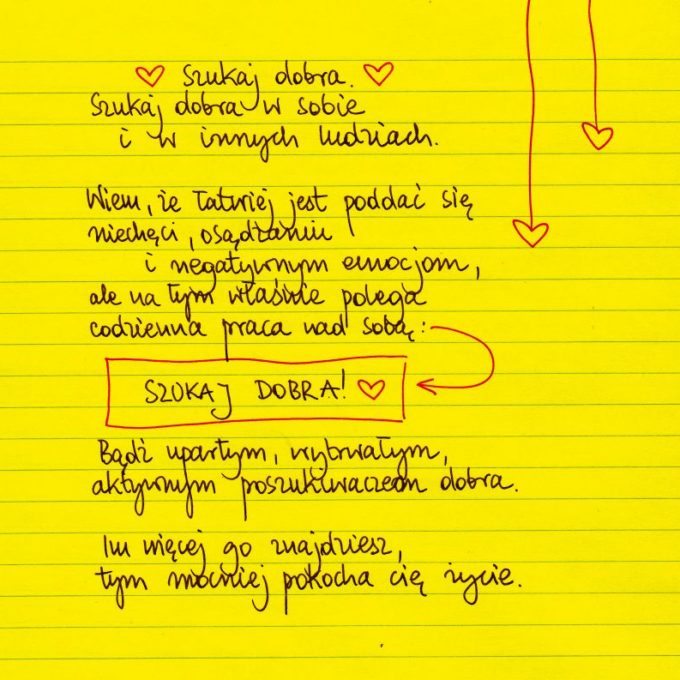 Szukaj dobra.
Szukaj dobra w sobie
i w innych ludziach.
Wiem, że łatwiej jest poddać się
niechęci, osądzaniu
i negatywnym emocjom,
ale na tym właśnie polega
codzienna praca nad sobą:
SZUKAJ DOBRA!
Bądź upartym, wytrwałym,
aktywnym poszukiwaczem dobra.
Im więcej go znajdziesz,
tym mocniej pokocha cię życie.